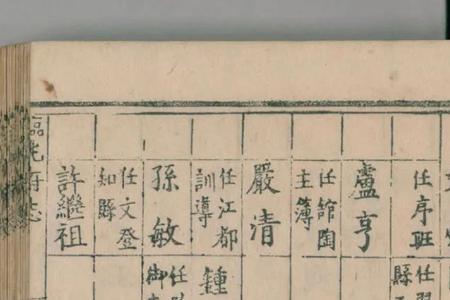 任序班
縣
盧亨
任館陶
主簿
嚴清
任江都
訓導
鍾
孫敏
任
御
任文登
知縣
許繼祖
臨洮府志